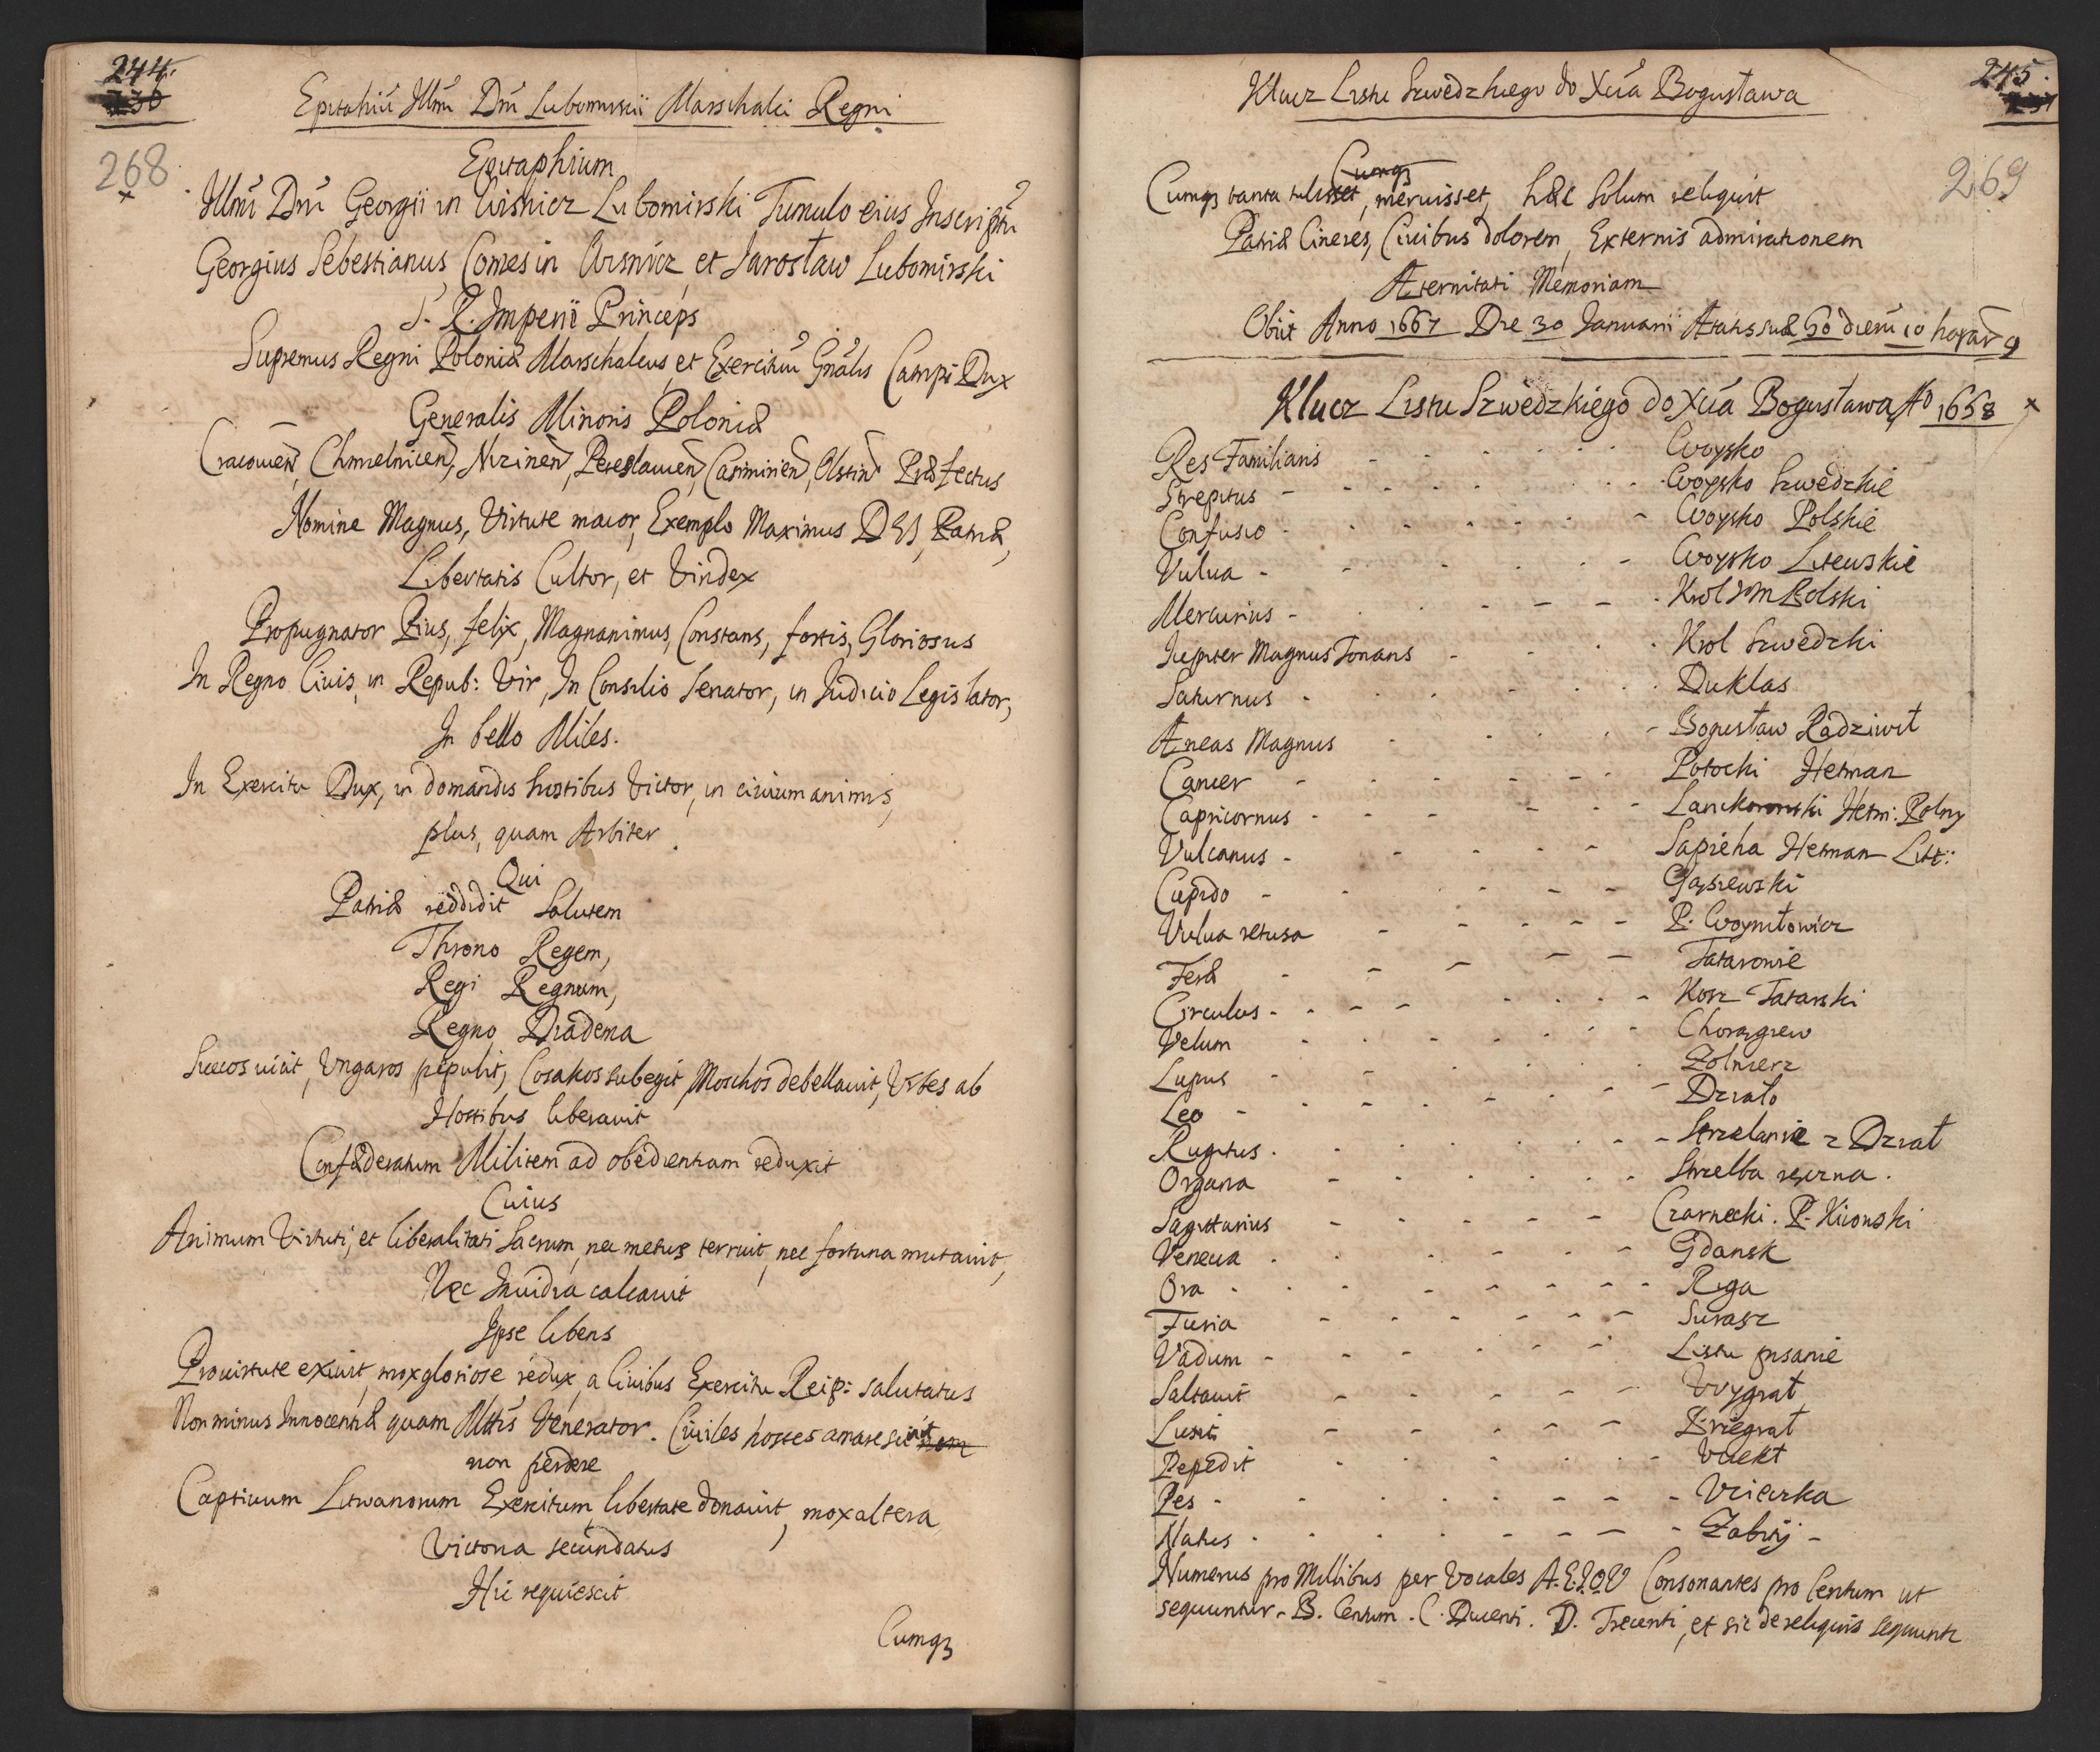 244.
Epitahiũ Illmi Dni Lubomirskii Marschalci Regni
268
Epitaphium
Illmi Dni Georgii in Wisnicz Lubomirski Tumulo eius Inscriptũ
Georgius Sebestianus Comes in Wisnicz et Jarosław Lubomirski
S. R. Imperii Princeps
Supremus Regni Poloniæ Marschalcus et Exercituũ Gnãlis Campi Dux
Generalis Minoris Poloniæ
Cracouien, Chmielnicen, Nizinen, Pereslauien, Casimirien, Olstin Præfectus
Nomine Magnus, Virtute maior, Exemplo Maximus DEI, Patriæ,
Libertatis Cultor, et Vindex
Propugnator Pius, felix, Magnanimus, Constans, fortis, Gloriosus
In Regno Ciuis, in Repub: Vir, In Consilio Senator, in Iudicio Legislator,
In bello Miles.
In Exercitu Dux, in domandis hostibus Victor, in ciuium animis,
plus, quam Arbiter.
Qui
Patriæ reddidit Salutem
Throno Regem,
Regi Regnum,
Regno Diadema
Suecos uicit, Vngaros pepulit, Cosakos subegit, Moschos debellauit, Vrbes ab
Hostibus liberauit
Confæderatum Militem ad obedientiam reduxit
Cuius
Animum Virtuti, et liberalitati Sacrum, nec metus terruit, nec fortuna mutauit,
Nec Inuidia calcauit
Ipse libens
Pro uirtute exiuit, mox gloriose redux, a Ciuibus Exercitu Reip: salutatus
Non minus Innocentiæ quam Mttis Venerator. Ciuiles hostes amare sciuit
non perdere
Captiuum Litwanorum Exercitum libertate donauit, mox altera
Victoria secundatus
Hic requiescit
Cumqz
245.
Klucz Listu Szwedzkiego do Xcia Bogusława
269
Cumqz
Cumqz tanta tulisset, meruisset, hæc Solum reliquit
Patriæ Cineres, Ciuibus dolorem, Externis admirationem
Æternitati Memoriam
Obiit Anno 1667 Die 30 Januarii Ætatis suæ 50 dierũ 10 horarũ 9
Klucz Listu Szwedzkiego do Xcia Bogusława Ao 1658
Res Familiaris - Woysko
Strepitus - Woysko Szwedzkie
Confusio - Woysko Polskie
Vulua - Woysko Litewskie
Mercurius - Krol JM Polski
Jupiter Magnus Tonans - Krol Szwedzki
Saturnus - Duklas
Æneas Magnus - Bogusław Radziwił
Cancer - Potocki Hetman
Capricornus - Lanckoronski Hetm: Polny
Vulcanus - Sapieha Hetman Litt:
Cupido - Gąsiewski
Vulua retusa - P. Woyniłowicz
Feræ - Tatarowie
Circulus - Kosz Tatarski
Velum - Chorągiew
Lupus - Zolnierz
Leo - Działo
Rugitus - Strzelanie z Dział
Organa - Strzelba ręczna.
Sagittarius - Czarnecki. P. Kiiowski
Venecia - Gdansk
Ora - Ryga
Furia - Surasz
Vadum - Listu pisanie
Saltauit - Wygrał
Lusit - Przegrał
Pepedit - Vciekł
Pes - Vcieczka
Natus - Zabity -
Numerus pro Millibus per Vocales A.E.I.O.V Consonantes pro Centum ut
sequuntur. B. Centum. C. Ducenti. D. Trecenti, et sic de reliquis sequunt